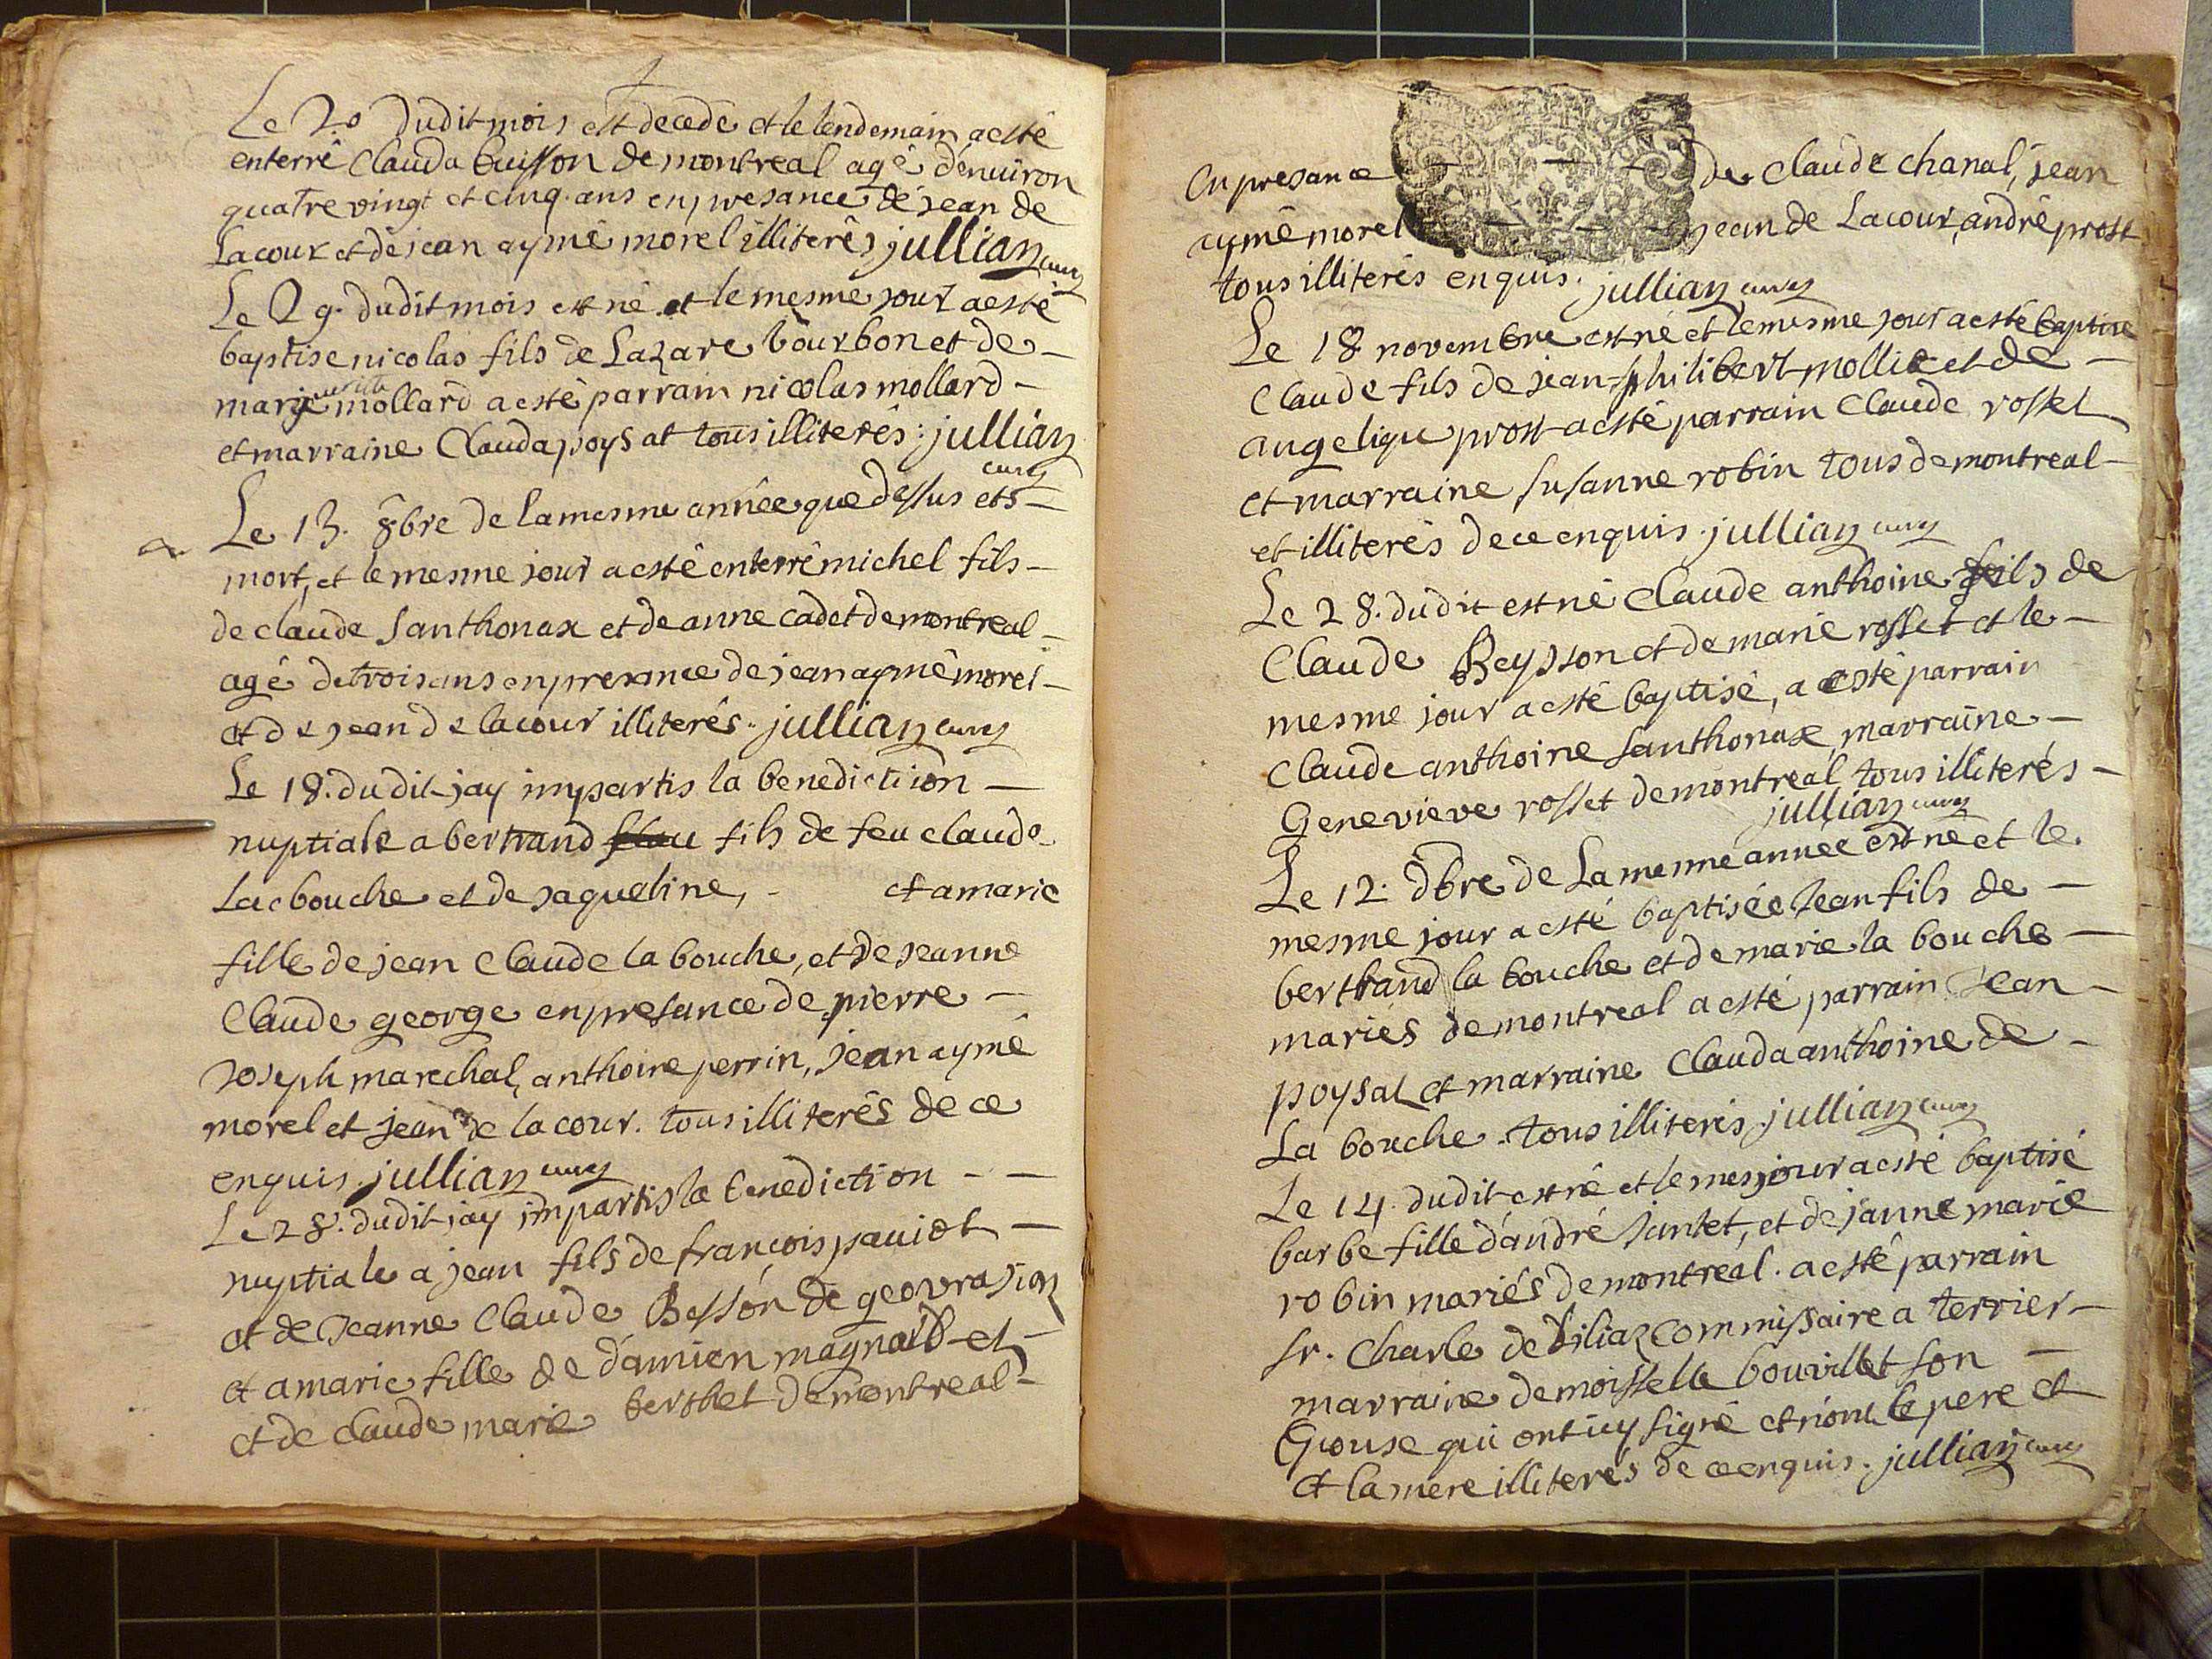 Le 20 dudit mois est decede et le lendemain a esté
enterré Clauda buisson de montreal agé dénuiron
quatre vingt et cinq ans en presance de jean de
Lacour et de jean aymé morel illiterés jullian curé
Le 29. dudit mois est né et le mesme jour a esté
baptise nicolas fils de Lazare bourbon et de
marie mollard a esté parrain nicolas mollard
et marraine Clauda poysat tous illiterés : jullian
curé
Le 13. 8bre de la mesme année que dessus est
mort, et le mesme jour a esté enterré michel fils
de claude Santhonax et de anne cadet de montreal
agé de trois ans en presance de jean aymé morel
et de jean de lacour illiterés. jullian curé
Le 18. dudit jay impartis la benediction
nuptiale a bertrand fils de feu claude
Labouche et de jaqueline, et a marie
fille de jean Claude la bouche, et de jeanne
Claude george en presance de pierre
joseph marechal, anthoine perrin, jean aymé
morel et jean de la cour. tous illiterés de ce
enquis. jullian curé
Le 28. dudit jay impartis la benediction
nuptiale a jean fils de françois pauiot
et de Jeanne Claude Besson de geovrasion
et a marie fille de damien magnard et
et de claude marie berthet de montreal
en presance de Claude chanal, jean
aymé morel jean de Lacour, andré prost
tous illiterés enquis. jullian curé
Le 18 novembre est né et le mesme jour a esté baptise
Claude fils de jean philibert mollie et de
angelique prost a esté parrain Claude rosset
et marraine susanne robin tous de montreal
et illiterés de ce enquis. jullian curé
Le 28. dudit est né Claude anthoine fils de
Claude Beysson et de marie rosset et le
mesme jour a esté baptisé, a esté parrain
Claude anthoine Santhonax marraine
Genevieve rosset de montreal tous illiterés
jullian curé
Le 12. dbre de La mesme année est né et le
mesme jour a esté baptisée Jean fils de
bertrand la bouche et de marie la bouche
mariés de montreal a esté parrain Jean
poysat et marraine Clauda anthoine de
La bouche. tous illiterés. jullian curé
Le 14. dudit est né et le mes jour a esté baptisé
barbe fille dándré Juntet, et de janne marie
robin mariés de montreal. a esté parrain
sr. Charle de commissaire a terrier
marraine demoisselle bouvillet son
Epouse qui ont icy signé et non le pere et
et la mere illiterés de ce enquis. jullian curé